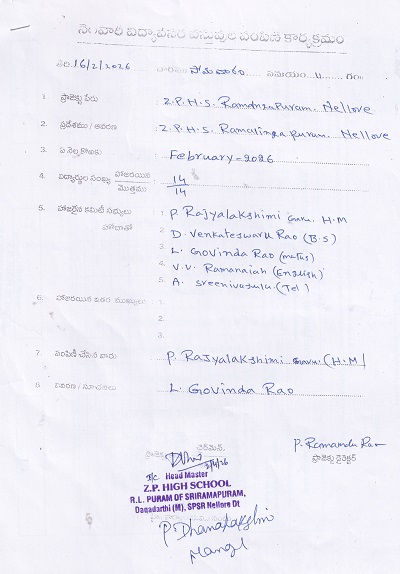 నెలవారి విద్యావసర వస్తువుల పంపిణి కార్యక్రమం
తేది. 16/2/2026 వారము సోమవారం సమయం. 11 గం
1 ప్రాజెక్టు పేరు : Z.P.H.S. Ramalingapuram. Nellore
2. ప్రదేశము / ఆవరణ : Z.P.H.S. Ramalingapuram. Nellore
3. ఏ నెల కొఱకు : February-2026
4. విద్యార్థుల సంఖ్య హాజరయిన / మొత్తము : 14 / 14
5. హాజరైన కమిటీ సభ్యులు హోదాతో
1. P. Rajyalakshimi Garu. H.M
2. D. Venkateswaru Rao (B.S)
3. L. Govinda Rao (maths)
4. V.V. Ramanaiah (English)
5. A. Sreenivasulu (Tel)
6. హాజరయిన ఇతర ముఖ్యులు : 1.
2.
3.
7. పంపిణీ చేసిన వారు : P. Rajyalakshimi Garu. (H.M)
8. వివరణ / సూచనలు : L. Govinda Rao
ఛైర్మెన్,
2/4/26
I/C Head Master
Z.P. HIGH SCHOOL
R.L. PURAM OF SRIRAMAPURAM,
Dagadarthi (M), SPSR Nellore Dt
P. Dhanalakshmi
ప్రాజెక్టు డైరెక్టర్